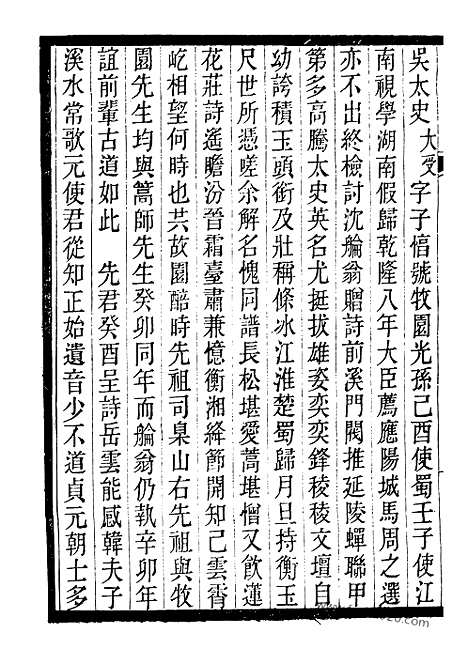 吳太史大受字子惇號牧園光孫己酉使蜀壬子使江
南視學湖南假歸乾隆八年大臣薦應陽城馬周之選
亦不出終檢討沈艑翁贈詩前溪門閥推延陵蟬聯甲
第多高騰太史英名尤挺拔雄姿奕奕鋒稜稜文壇自
幼誇積玉頭銜及壯稱條冰江淮楚蜀歸月旦持衡玉
尺世所憑嗟余解名愧同譜長松堪愛蒿堪憎又飲蓮
花莊詩遙瞻汾晉霜臺肅兼憶衡湘絳節開知己雲霄
屹相望何時也共故園醅時先祖司臬山右先祖與牧
園先生均與蒿師先生癸卯同年而艑翁仍執辛卯年
誼前輩古道如此　先君癸酉呈詩岳雲能感韓夫子
溪水常歌元使君從知正始遺音少不道貞元朝士多